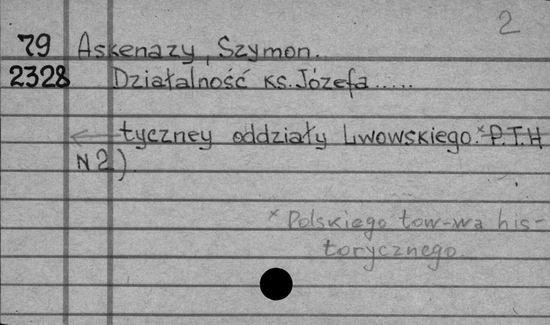 2
79 Askenazy, Szymon.
2328 Działalność ks. Józefa.....
tyczney oddziały Lwowskiego.x P.T.H
N2)
x Polskiego tow-wa his-
torycznego.